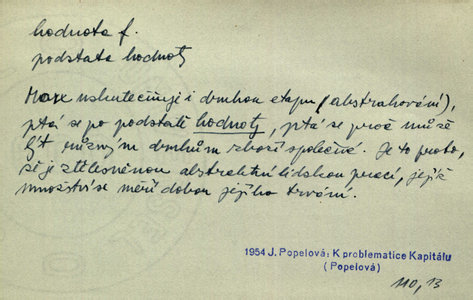 hodnota f.
podstata hodnoty
Marx uskutečňuje i druhou etapu (abstrahování),
ptá se po podstatě hodnoty, ptá se proč může
být různým druhům zboží společné. Je to proto,
že je ztělesněnou abstraktní lidskou prací, jejíž
množství se měří dobou jejího trvání.
1954 J. Popelová: K problematice Kapitálu
(Popelová)
110, 13